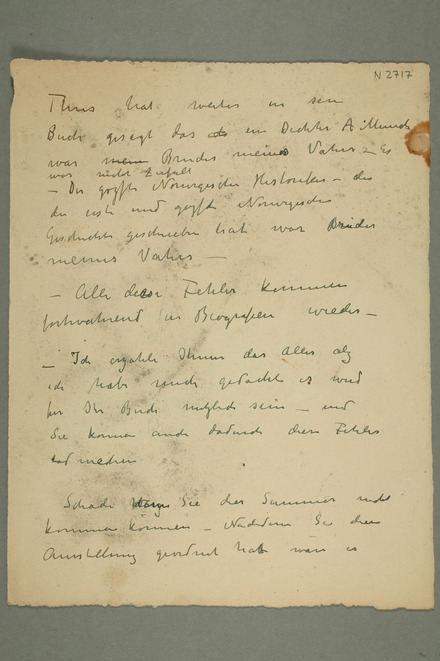 N 2717
Thiis hat weiter in sein
Buch gesagt das ein Dichter A Munch
war mein Bruder meines Vaters – Es
war nicht
– Der größte Norwegische Historiker – der
die erste und größte Norwegische
Geschichte geschrieben hat war Bruder
meines Vaters —
– Alle diese Fehler kommen
fortwährend in Biografien wieder –
– Ich erzähle Ihnen das Alles
ich habe gedacht es wird
für Ihr Buch nützlich sein – und
Sie können auch dadurch diese Fehler
Schade Sie der Sommer nicht
kommen können – Nachdem Sie die
Ausstellung geordnet hat wäre es